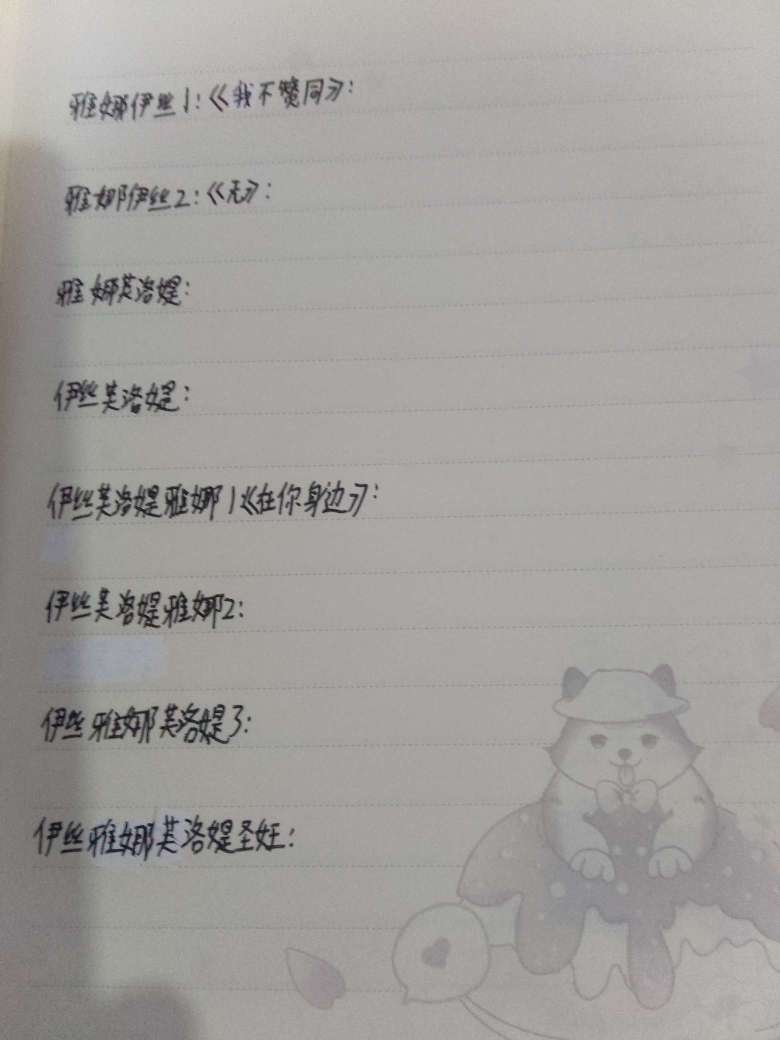 雅娜伊丝1:《我不赞同》:
雅娜伊丝2:《无》:
雅娜芙洛媞:
伊丝芙洛媞:
伊丝芙洛媞雅娜1《在你身边》:
伊丝芙洛媞雅娜2:
伊丝雅娜芙洛媞3:
伊丝雅娜芙洛媞圣妊: